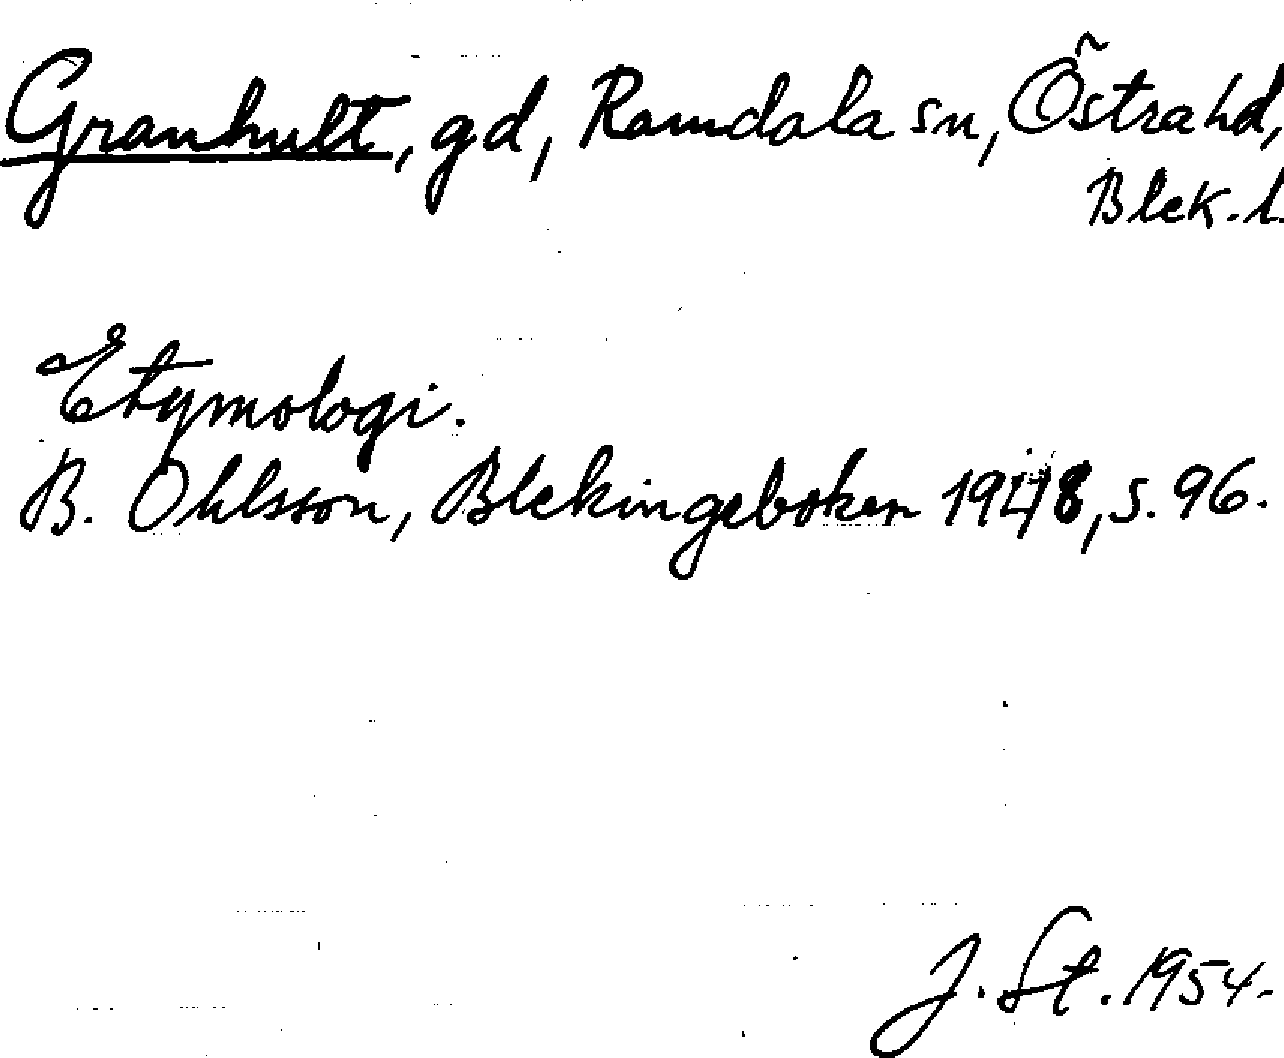 Granhult, gd, Ramdala sn, Östra hd,
Blek. l.
Etymologi.
B. Ohlsson, Blekingeboken 1948, s. 96.
J. St. 1954.